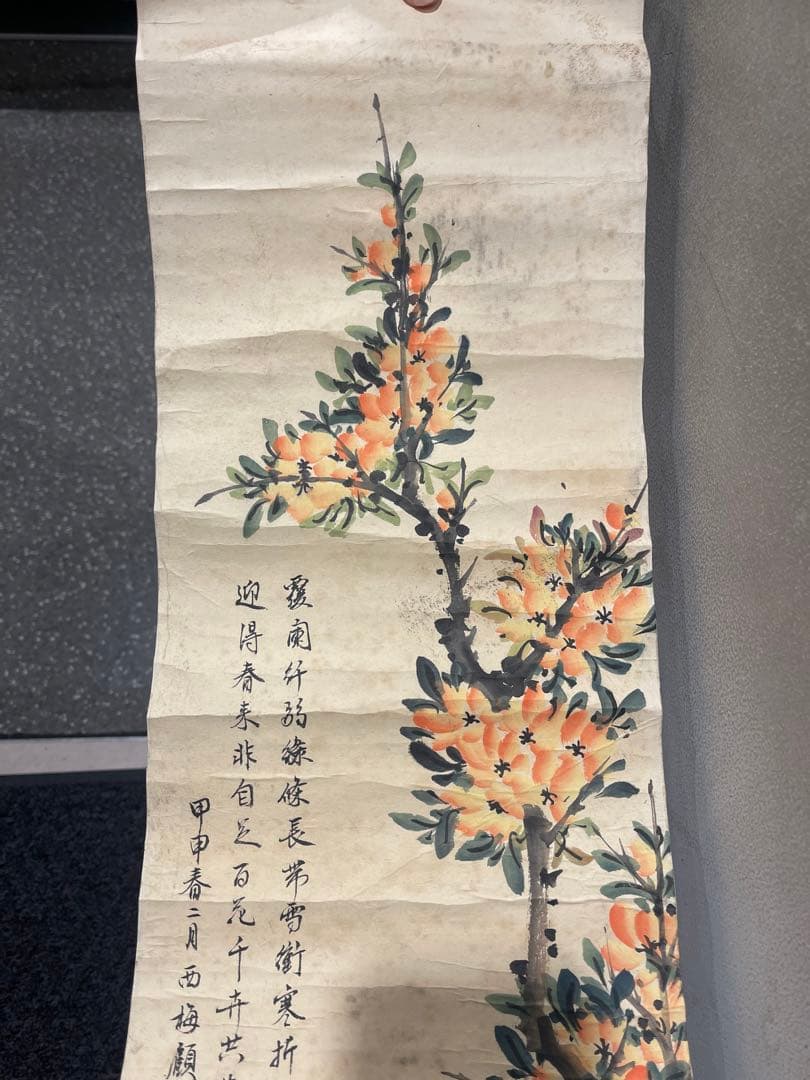 覆阑纤弱綠條長带雪衝寒折
迎得春来非自足百花千卉共
甲申春二月西梅顧